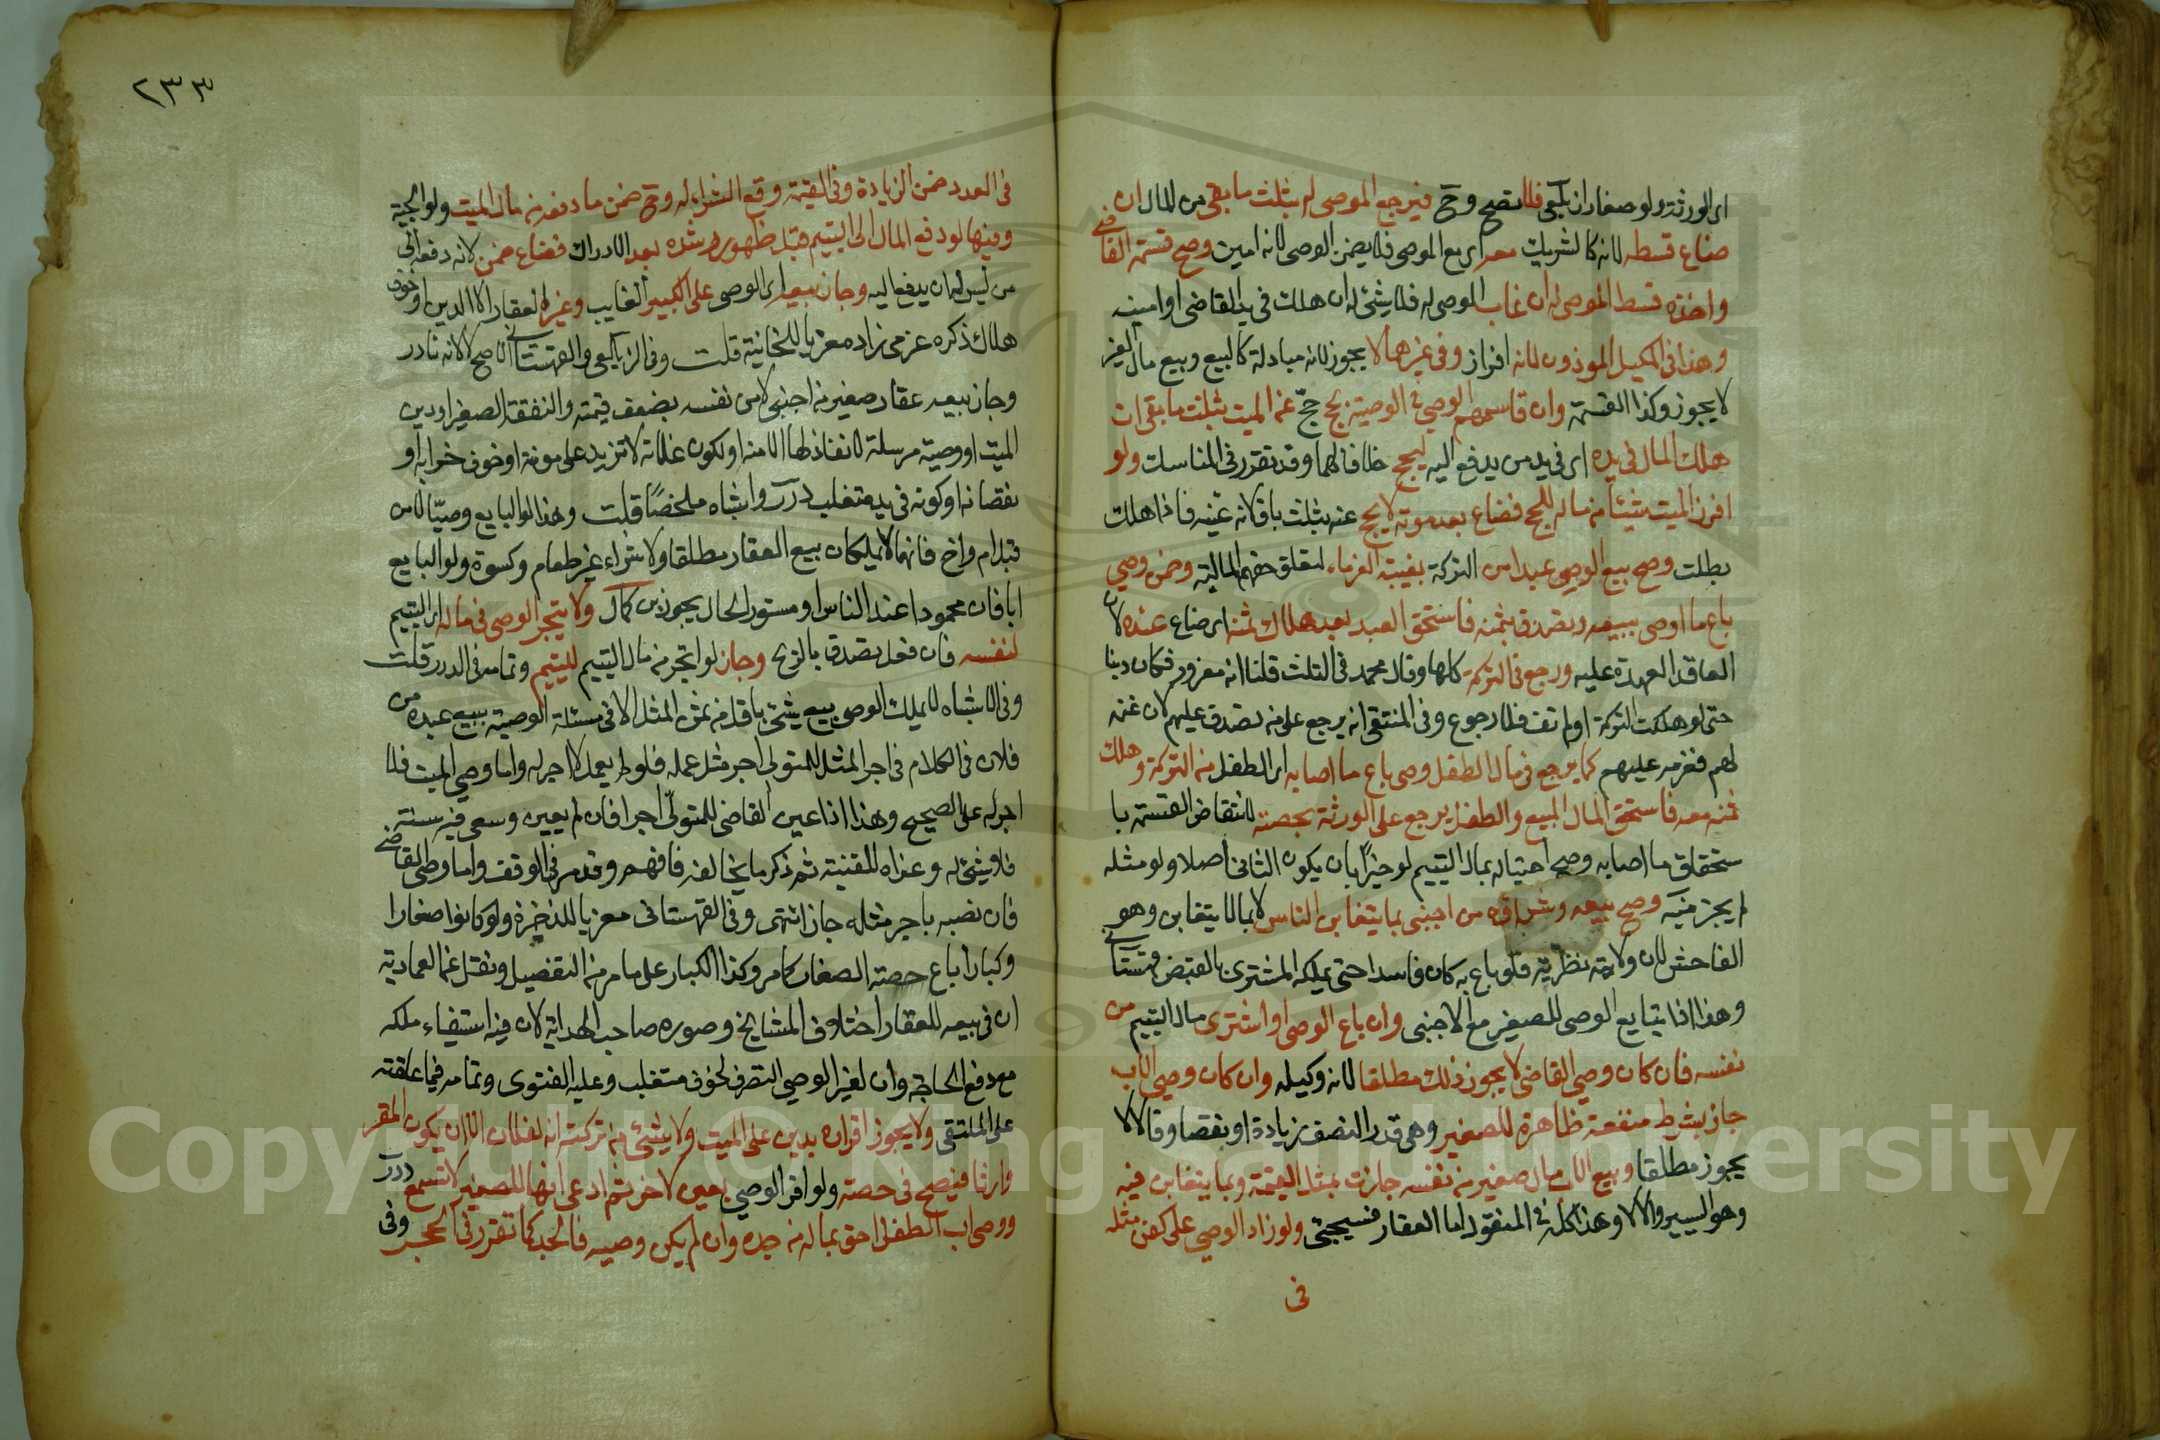 اى الورثة ولو صغارا زيلعى فلا تصح وح فيرجع الموصى له بثلث ما بقى من المال ان
ضاع قسطه لانه كالشريك معه اى مع الموصى فلا يضمن الوصى لانه امين وصح قسمة القاضى
واخذه قسط الموصى له ان غاب الموصى له فلا شئ له ان هلك فى يد القاضى او امينه
وهذا فى المكيل الموزون لانه افراز وفى غيرهما لا يجوز لانه مبادلة كالبيع وبيع مال الغير
لا يجوز وكذا القسمة وان قاسمهم الوصى فى الوصية بحج حجّ عن الميت بثلث ما بقى ان
هلك المال فى يده اى فى يد من يدفع اليه ليحج خلافا لهما وقد تقرر فى المناسك ولو
افرز الميت شيئا من ماله للحج فضاع بعد موته لا يحج عنه بثلث باق لانه عينه فاذا هلك
بطلت وصح بيع الوصى عبدا من التركة بغيبة الغرماء لتعلق حقهم بالمالية وضمن وصى
باع ما اوصى ببيعه وتصدق بثمنه فاستحق العبد بعد هلاك ثمنه اى ضاع عنده لان
العاقد العهدة عليه ورجع فى التركة كلها وقال محمد فى الثلث قلنا انه مغرور فكان دينا
حتى لو هلكت التركة او لم تف فلا رجوع وفى المنتقى انه يرجع على من تصدق عليهم لان غنمه
لهم فغرمه عليهم كما يرجع فى مال الطفل وصى باع ما اصابه اى الطفل من التركة وهلك
ثمنه معه فاستحق المال المبيع والطفل يرجع على الورثة بحصته لانتقاض القسمة با
ستحقاق ما اصابه وصح احتياله بمال اليتيم لو خيرًا بان يكون الثانى أملا ولو مثله
لم يجز منيه وصح بيعه وشراؤه من اجنبى بما يتغابن الناس لا بما لا يتغابن وهو
الفاحش لان ولايته نظرية فلو باع به كان فاسدا حتى يملكه المشترى بالقبض قهستانى
وهذا اذا تبايع الوصى للصغير مع الاجنبى وان باع الوصى او اشترى مال اليتيم من
نفسه فان كان وصى القاضى لا يجوز ذلك مطلقا لانه وكيله وان كان وصى الاب
جاز بشرط منفعة ظاهرة للصغير وهى قدر النصف زيادة او نقصا وقالا لا
يجوز مطلقا وبيع الاب مال صغير من نفسه جائز بمثل القيمة وبما يتغابن فيه
وهو اليسير والا لا وهذا كله فى المنقود اما العقار فسيجئ ولو زاد الوصى على كفن مثله
فى
٢٣٣
فى العدد ضمن الزيادة وفى القيمة وقع الشراء له وح ضمن ما دفعه من مال الميت ولوالجية
وفيها لو دفع المال الى اليتيم قبل ظهور رشده بعد الادراك فضاع ضمن لانه دفعه الى
من ليس له ان يدفع اليه وجاز بيعه اى الوصى على الكبير الغايب وغير العقار الا الدين او خوف
هلاك ذكره عزمى زاده معزيا للخانية قلت وفى الزيلعى والقهستانى الاصح لا لانه نادر
وجاز بيعه عقار صغير من اجنبى لا من نفسه بضعف قيمته والنفقة الصغير او دين
الميت او وصية مرسلة لا نفاذ لها الا منه او لكون غلاته لا تزيد على مؤنته او خوف خرابه او
نقصانه او كونه فى يد متغلب درر واشباه ملخصًا قلت وهذا لو البايع وصيّا لا من
قبل ام واخ فانهما لا يملكان بيع العقار مطلقا ولا شراء غير طعام وكسوة ولو البايع
ابا فان محمودا عند الناس او مستور الحال يجوز بن كمال ولا يتجر الوصى فى ماله اى اليتيم
لنفسه فان فعل تصدق بالربح وجاز لو اتجر من مال اليتيم لليتيم وتمامه فى الدرر قلت
وفى الاشباه لا يملك الوصى بيع شئ باقل من ثمن المثل الا فى مسئلة الوصية ببيع عبده من
فلان فى الكلام فى اجر المثل للمتولى اجر مثل عمله فلو لم يعمل لا اجر له واما وصى الميت فلا
اجر له على الصحيح وهذا اذا عين القاضى للمتولّى اجرا فان لم يعين وسعى فيه سنة
فلا شئ له وعزاه للقنية ثم ذكر ما يخالفه فافهم وقد مر فى الوقف واما وصى القاضى
فان نصبه باجر مثله جاز انتهى وفى القهستانى معزيا للذخيرة ولو كانوا صغارا
وكبارا باع حصة الصغار كما مر وكذا الكبار على ما مر من التفصيل ونقل عن العمادية
ان فى بيعه للعقار اختلاف المشايخ وصوره صاحب الهداية لان فيه استيفاء ملكه
مع دفع الحاجة وان لغير الوصى التصرف لخوف متغلب وعليه الفتوى وتمامه فيما علقته
على الملتقى ولا يجوز اقراره بدين على الميت ولا بشئ من تركته انه لفلان الا ان يكون المقر
وارثا فيصح فى حصته ولو اقر الوصى بعين لاخر ثم ادعى انها للصغير لا تسمع درر
ووصى اب الطفل احق بماله من جده وان لم يكن وصيه فالجد كما تقرر فى الحجر وفى